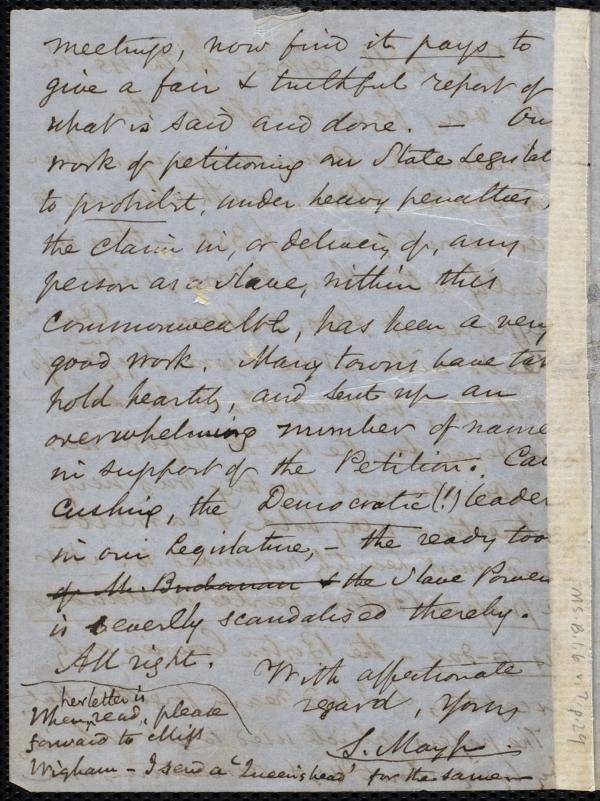 meetings, now find it pays to
give a fair & truthful report of
what is said and done. — Our
work of petitioning our State Legislat
to prohibit, under heavy penalties,
the claim in, or delivery of, any
person as a slave, within this
Commonwealth, has been a very
good work. Many towns have tak
hold heartily, and sent up an
overwhelming number of name
in support of the Petition. Cal
Cushing, the Democratic (!) leader
in our Legislature, – the ready tool
of Mr. Buchanan & the Slave Power
is severely scandalised thereby.
All right. With affectionate
regard, Yours
S. May Jr
her letter is
When read, please
forward to Miss
Wigham – I send a 'Queen's head' for the same
Ms.B.1.6 v.7, p.29